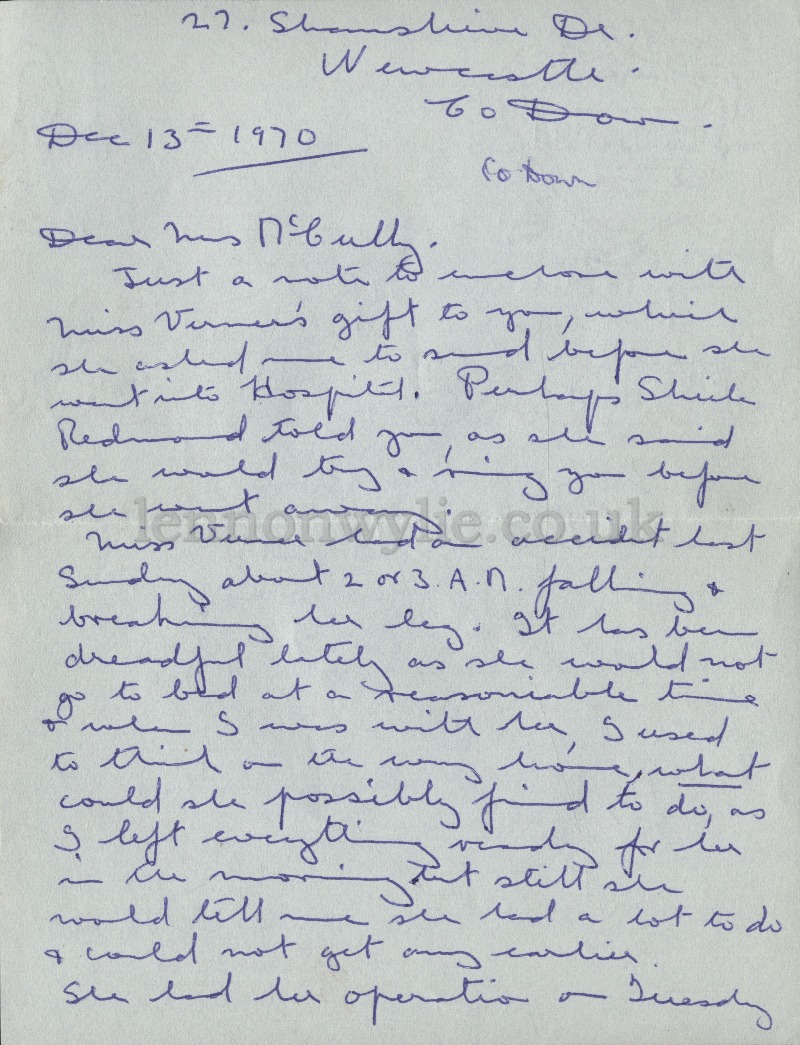 27. Shanslieve Dr.
Newcastle.
Co Down.
Dec 13= 1970
Co Down
Dear Mrs McCully.
Just a note to enclose with
Miss Verner's gift to you, which
she asked me to send before she
went into Hospital. Perhaps Sheila
Redmond told you, as she said
she would try & ring you before
she went away.
lennonwylie.co.uk
Miss Verner had an accident last
Sunday about 2 or 3. A.M. falling &
breaking her leg. It has been
dreadful lately as she would not
go to bed at a reasoniable time
& when I was with her, I used
to think on the way home, what
could she possibly find to do, as
I left everything ready for her
in the morning but still she
would tell me she had a lot to do
& could not get any earlier.
She had her operation on Tuesday